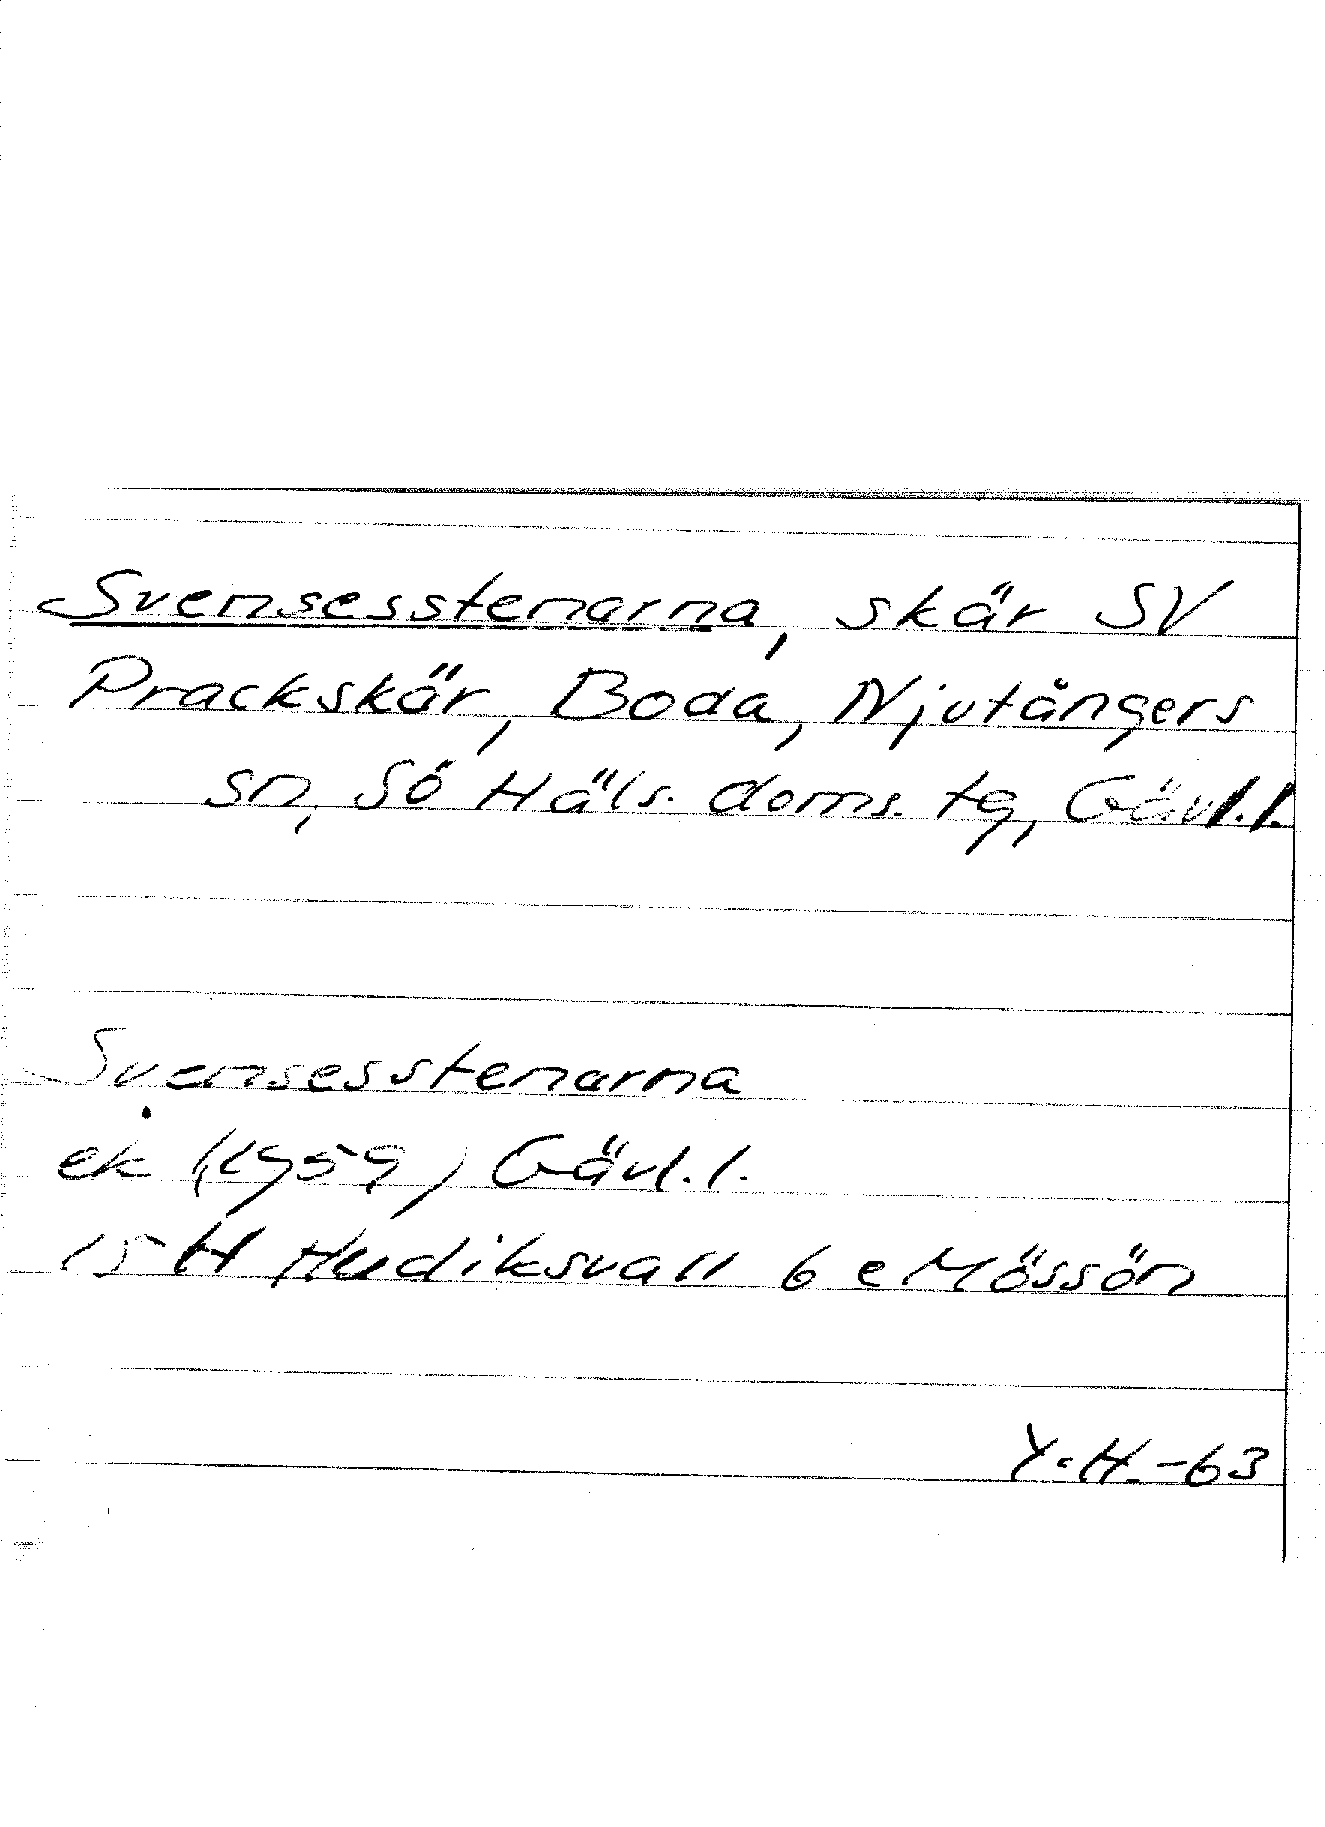 Svensesstenarna, skär SV
Prackskär, Boda, Njutångers
sn, Sö Häls. doms. tg, Gävl.l.
Svensesstenarna
ek (1959) Gävl.l.
15 H Hudiksvall 6 e Mössön
Y.H.-63